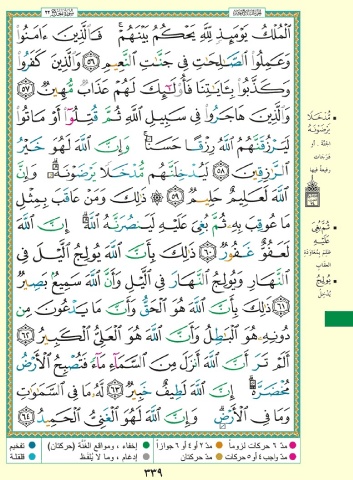 ٱلْمُلْكُ يَوْمَئِذٍ لِّلَّهِ يَحْكُمُ بَيْنَهُمْ ۚ فَٱلَّذِينَ ءَامَنُوا۟
وَعَمِلُوا۟ ٱلصَّٰلِحَٰتِ فِى جَنَّٰتِ ٱلنَّعِيمِ ٥٦ وَٱلَّذِينَ كَفَرُوا۟
وَكَذَّبُوا۟ بِـَٔايَٰتِنَا فَأُو۟لَٰٓئِكَ لَهُمْ عَذَابٌ مُّهِينٌ ٥٧
وَٱلَّذِينَ هَاجَرُوا۟ فِى سَبِيلِ ٱللَّهِ ثُمَّ قُتِلُوٓا۟ أَوْ مَاتُوا۟
لَيَرْزُقَنَّهُمُ ٱللَّهُ رِزْقًا حَسَنًا ۚ وَإِنَّ ٱللَّهَ لَهُوَ خَيْرُ
ٱلرَّٰزِقِينَ ٥٨ لَيُدْخِلَنَّهُم مُّدْخَلًا يَرْضَوْنَهُۥ ۗ وَإِنَّ
ٱللَّهَ لَعَلِيمٌ حَلِيمٌ ٥٩ ۞ ذَٰلِكَ وَمَنْ عَاقَبَ بِمِثْلِ
مَا عُوقِبَ بِهِۦ ثُمَّ بُغِىَ عَلَيْهِ لَيَنصُرَنَّهُ ٱللَّهُ ۗ إِنَّ ٱللَّهَ
لَعَفُوٌّ غَفُورٌ ٦٠ ذَٰلِكَ بِأَنَّ ٱللَّهَ يُولِجُ ٱلَّيْلَ فِى
ٱلنَّهَارِ وَيُولِجُ ٱلنَّهَارَ فِى ٱلَّيْلِ وَأَنَّ ٱللَّهَ سَمِيعٌۢ بَصِيرٌ
٦١ ذَٰلِكَ بِأَنَّ ٱللَّهَ هُوَ ٱلْحَقُّ وَأَنَّ مَا يَدْعُونَ مِن
دُونِهِۦ هُوَ ٱلْبَٰطِلُ وَأَنَّ ٱللَّهَ هُوَ ٱلْعَلِىُّ ٱلْكَبِيرُ ٦٢
أَلَمْ تَرَ أَنَّ ٱللَّهَ أَنزَلَ مِنَ ٱلسَّمَآءِ مَآءً فَتُصْبِحُ ٱلْأَرْضُ
مُخْضَرَّةً ۗ إِنَّ ٱللَّهَ لَطِيفٌ خَبِيرٌ ٦٣ لَّهُۥ مَا فِى ٱلسَّمَٰوَٰتِ
وَمَا فِى ٱلْأَرْضِ ۗ وَإِنَّ ٱللَّهَ لَهُوَ ٱلْغَنِىُّ ٱلْحَمِيدُ ٦٤
مُدْخَلًا
يَرْضَوْنَهُ
الجنّة ، أو
ثُمَّ بُغِيَ
عَلَيْهِ
يُولِجُ
يُدخِل
مدّ ٦ حركات لزوماً مدّ ٢ أو ٤ أو ٦ جوازاً إخفاء ، ومواقع الغُنَّة (حركتان) تفخيم
مدّ واجب ٤ أو ٥ حركات مدّ حركتان إدغام ، وما لا يُلفَظ قلقلة
٣٣٩